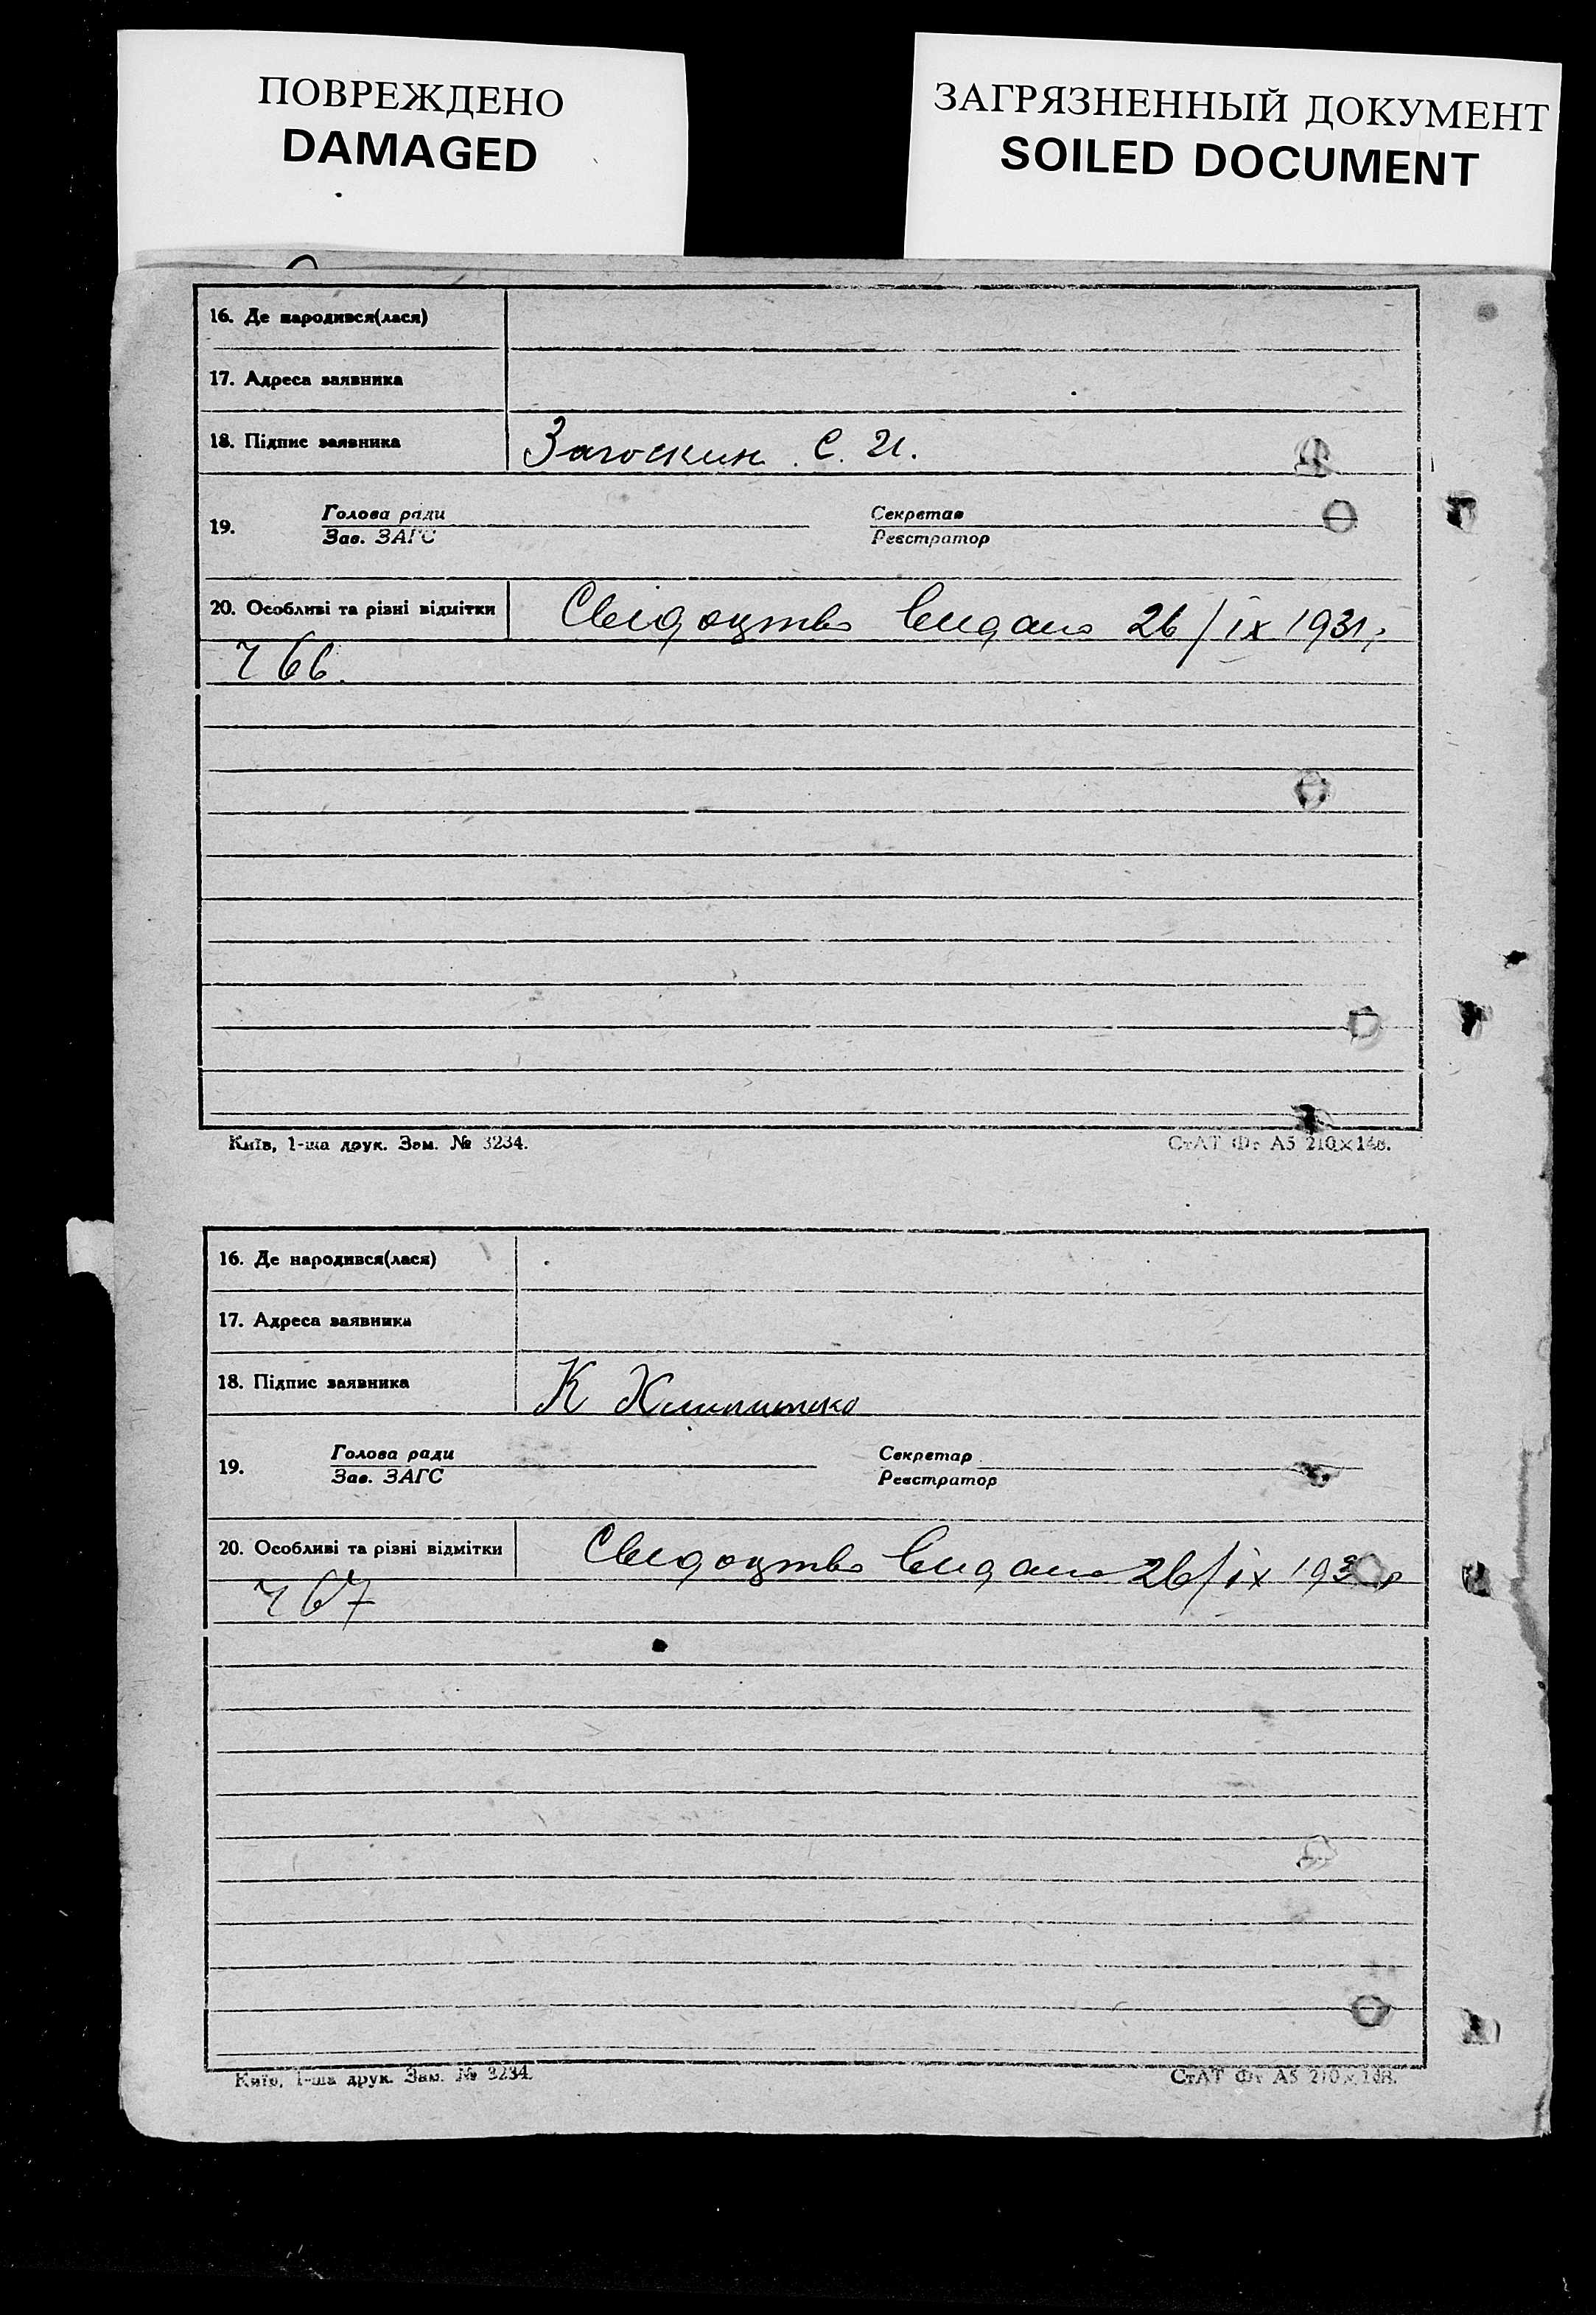 ПОВРЕЖДЕНО
DAMAGED
ЗАГРЯЗНЕННЫЙ ДОКУМЕНТ
SOILED DOCUMENT
16. Де народився(лася)
17. Адреса заявника
18. Підпис заявника Загоскин С. И.
19. Голова ради Секретар
Зав. ЗАГС Реєстратор
20. Особливі та різні відмітки Свідоцтво видано 26/IX 1931 р
ч 66.
Київ, 1-ша друк. Зам. № 3234. СтАТ Фт А5 210×148.
16. Де народився(лася)
17. Адреса заявника
18. Підпис заявника К
19. Голова ради Секретар
Зав. ЗАГС Реєстратор
20. Особливі та різні відмітки Свидоцтво видано 26/IX 193 р
ч 67
Київ, 1-ша друк. Зам. № 3234. СтАТ Фт А5 210×148.